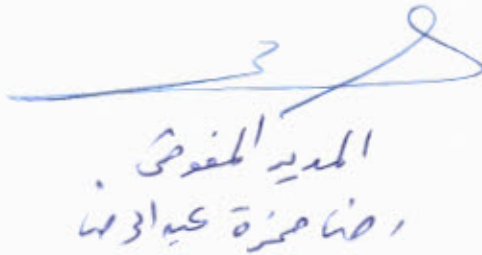 المدير المفوض
رضا حمزة عبد الرضا